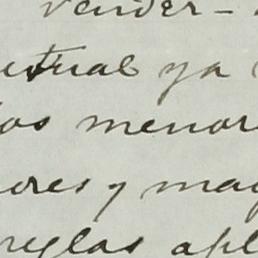 vender-
utual ya
los menor
ores y may
reglas apl